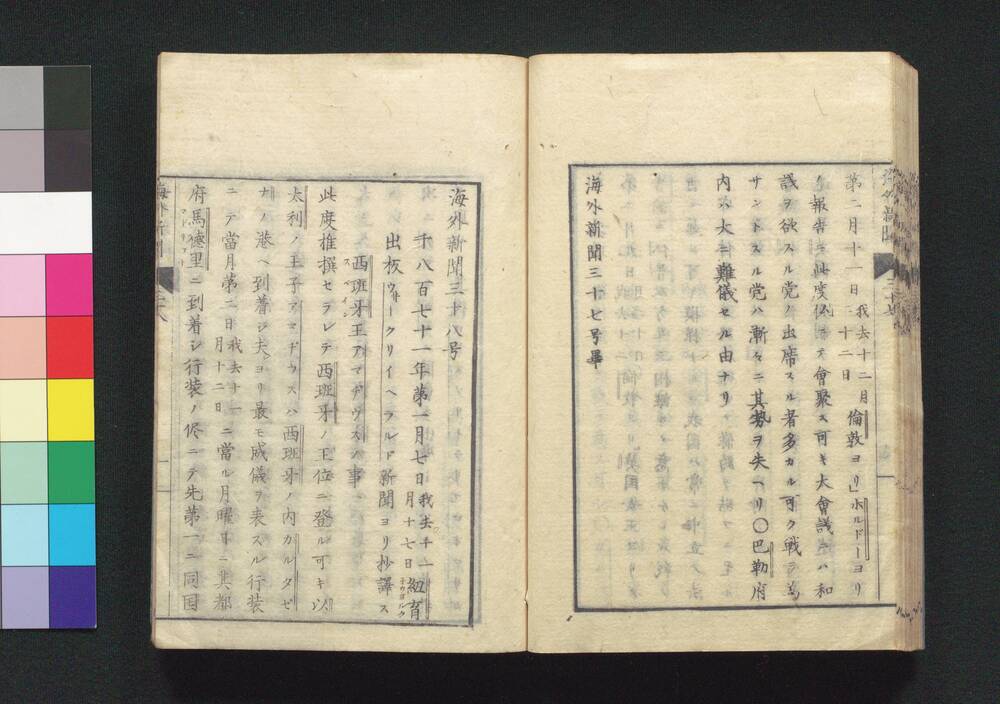 第二月十一日我去十二月二十二日倫敦ヨリ」ホルドーヨリ
ノ報告ニ此度ニテ會聚ス可キ大會議ニハ和
議ヲ欲スル党ノ出席スル者多カル可ク戦ヲ為
サントスル党ハ漸々ニ其勢ヲ失ヘリ〇巴勒府
内ハ大ニ難儀セル由ナリ
海外新聞三十七号畢
海外新聞三十八号
千八百七十一年第一月七日我去十一月十七日紐育
出板ウヰークリイヘラルド新聞ヨリ抄譯ス
西班牙王アマデウスノ事
此度推撰セラレテ西班牙ノ王位ニ登ル可キ以
太利ノ王子アマデウスハ西班牙ノ内カルタゼ
ナノ港ヘ到着シ夫ヨリ最モ威儀ヲ表スル行装
ニテ當月第二日我去十一月十二日ニ當ル月曜日ニ其都
府馬德里ニ到着シ行装ノ侭ニテ先第一ニ同国